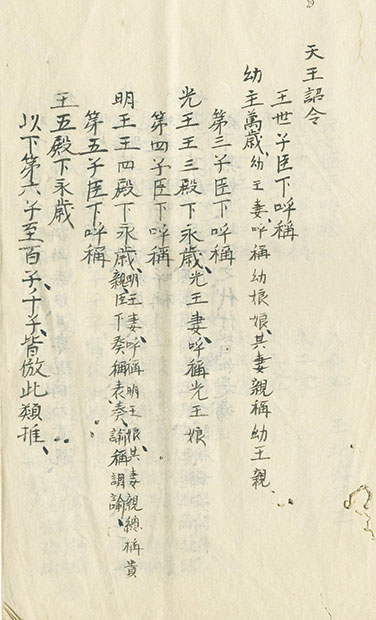 天王詔令
王世子臣下呼稱
幼主萬歲、幼主妻、呼稱幼娘娘、其妻親稱幼王親
第三子臣下呼稱
光王王三殿下永歲、光王妻、呼稱光王娘
第四子臣下呼稱
明王王四殿下永歲、明王妻呼稱明王娘其妻親總稱貴親、臣下奏稱表奏、諭稱調諭、
第五子臣下呼稱
王五殿下永歲
以下第六子至百子、千子、皆倣此類推、